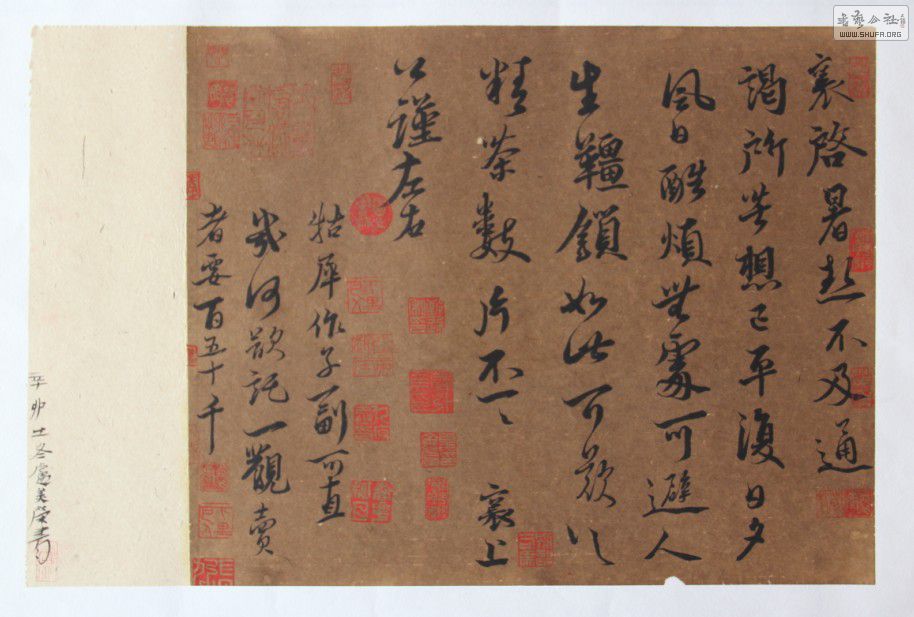 襄啓暑熱不及通
謁所苦想已平復日夕
風日酷煩無處可避人
生韁鎖如此可歎歎
精茶數片不一一 襄上
公謹左右
牯犀作子一副可直
幾何欲託一觀賣
者要百五十千
辛卯
冬
WWW.SHUFA.ORG